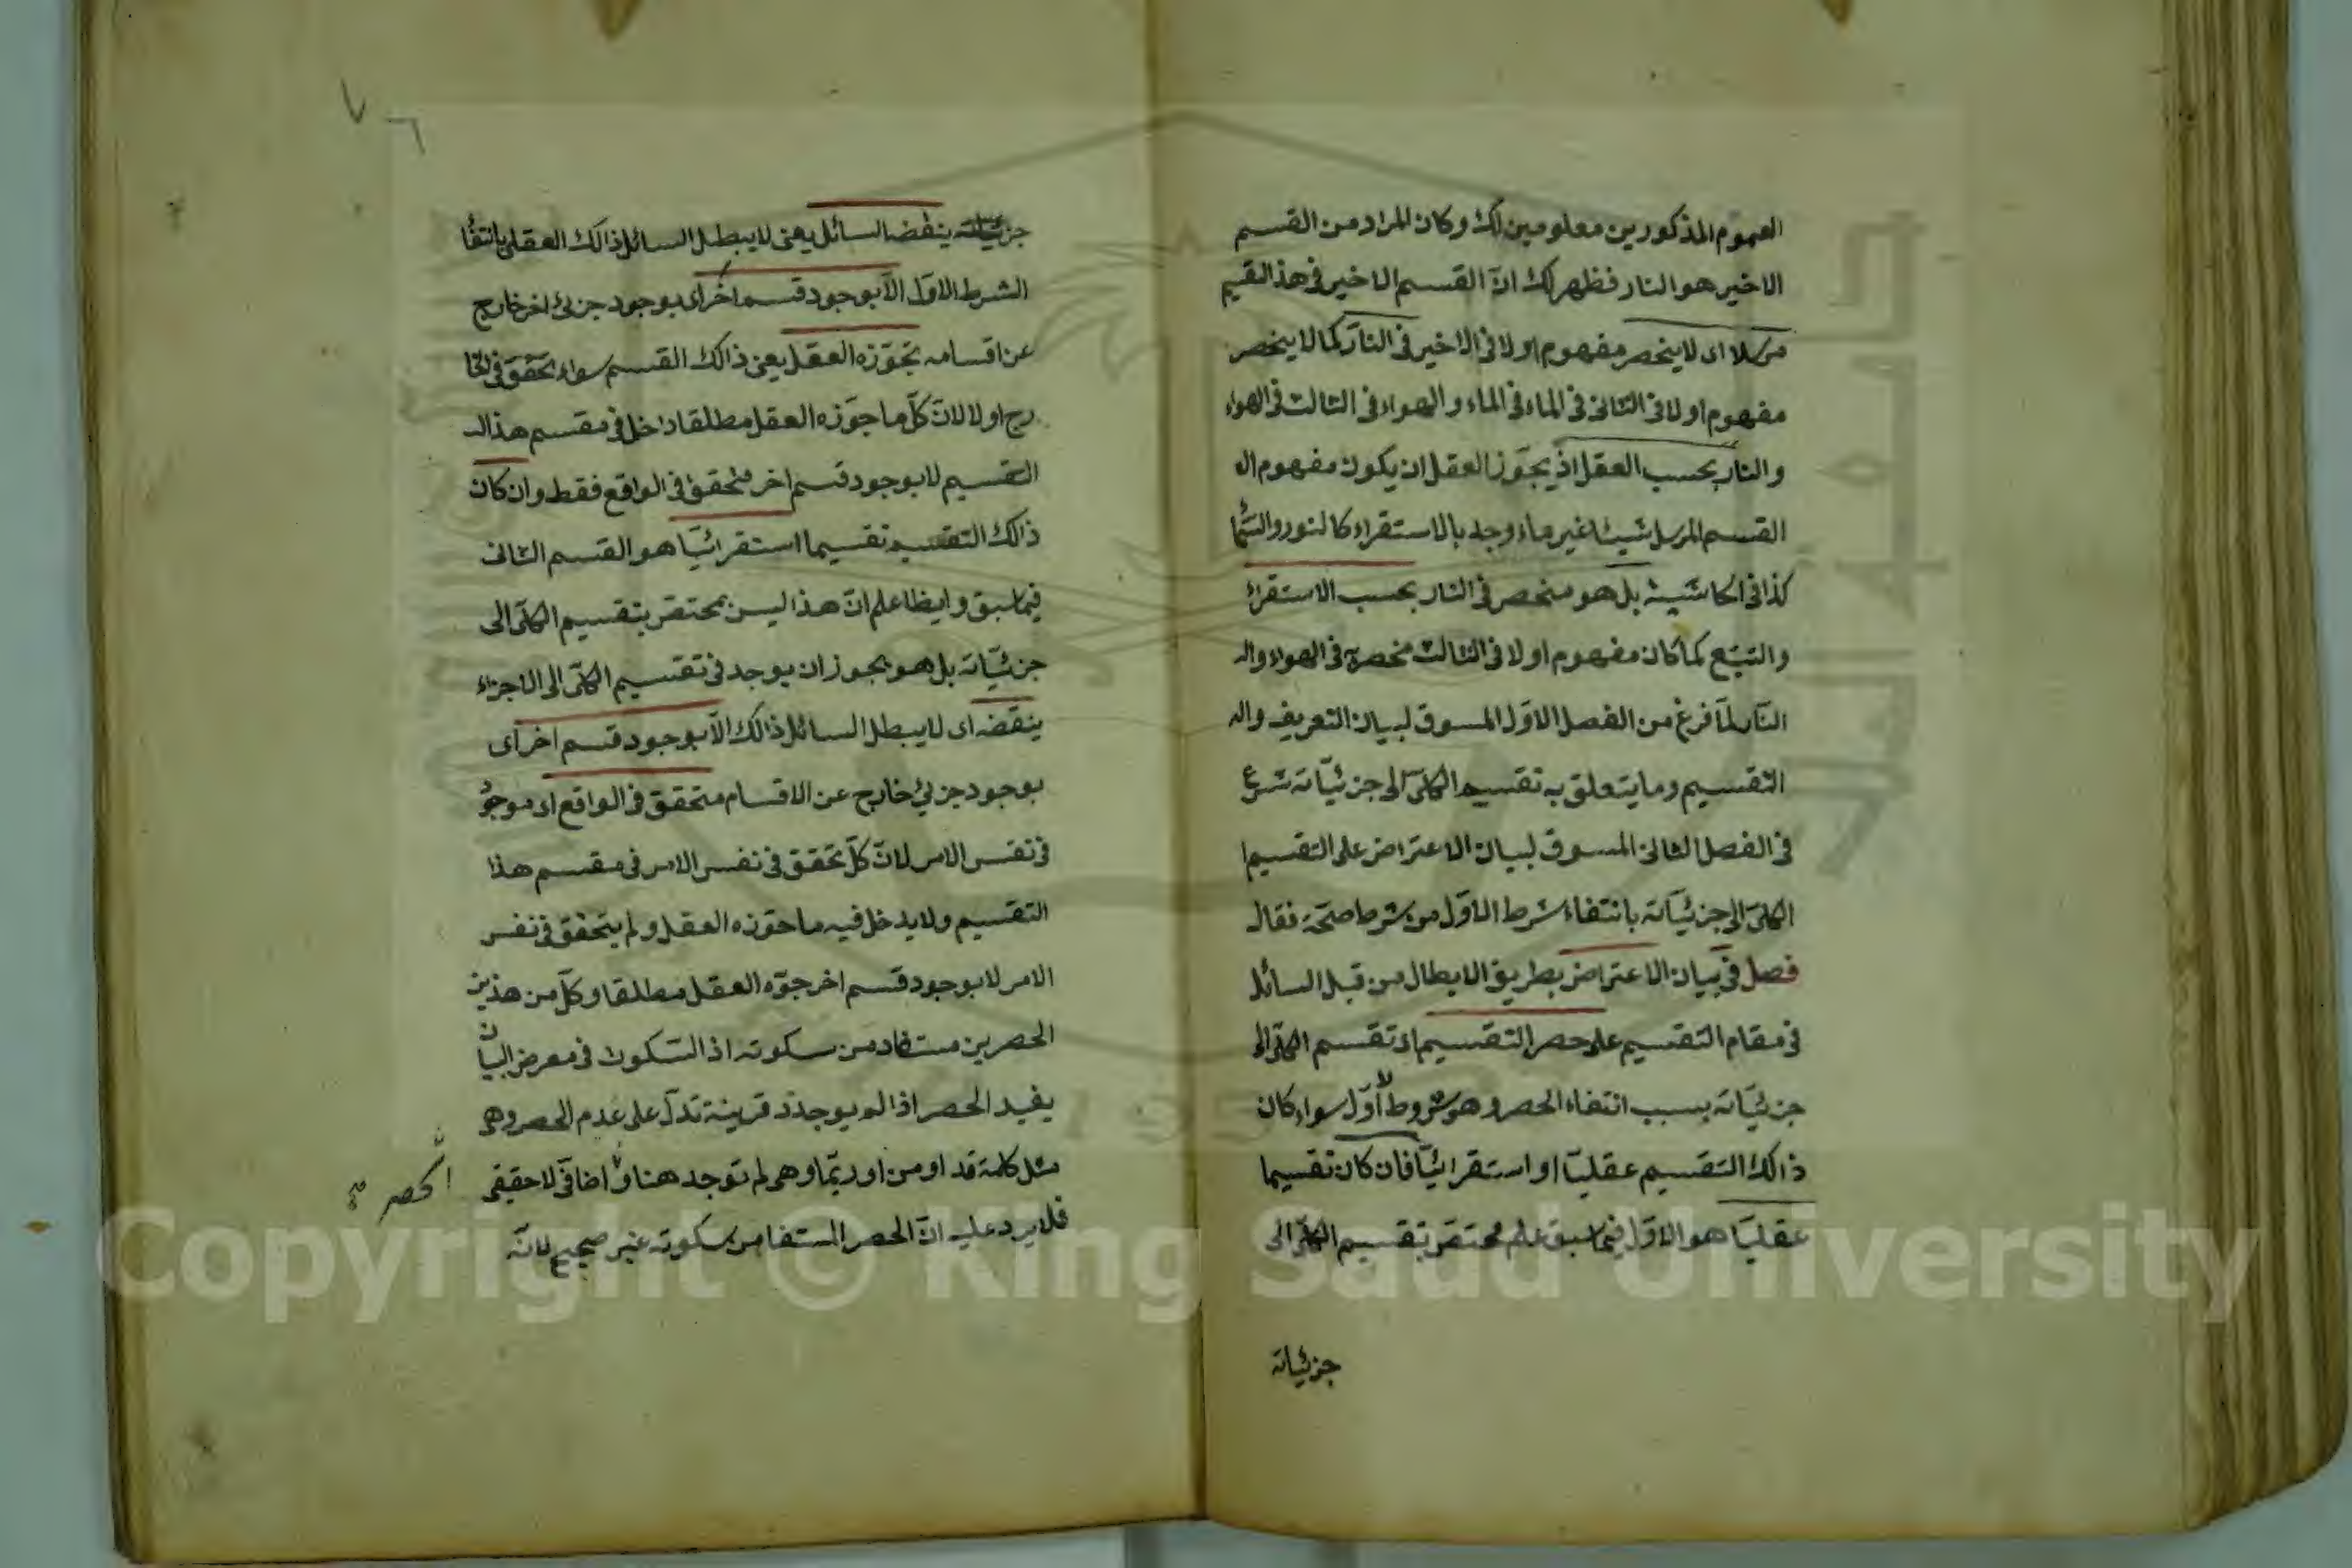 العموم المذكورين معلومين لك وكان المراد من القسم
الاخير هو النار فظهر لك انّ القسم الاخير فى هذا القسيم
مرسلا اى لا ينحصر مفهوم اولا فى الاخير فى النار كما لا ينحصر
مفهوم اولا فى الثانى فى الماء فى الماء والهواء فى الثالث فى الهواء
والنار بحسب العقل اذ يجوّز العقل ان يكون مفهوم ال
القسم المرسل شيئا غير ما وجد بالاستقراء كالنور والسّما
كذا فى الحاشية بل هو منحصر فى النار بحسب الاستقراء
والتتبّع كما كان مفهوم اولا فى الثالث منحصرة فى الهواء وال
النّار لمّا فرغ من الفصل الاوّل المسوق لبيان التعريف وال
التقسيم وما يتعلق به تقسيم الكلّى الى جزئيّاته شرع
فى الفصل الثانى المسوق لبيان الاعتراض على التقسيم ا
الكلّى الى جزئيّاته بانتفاء شرط الاوّل من شرط صحّة فقال
فصل فى بيان الاعتراض بطريق الابطال من قبل السائل
فى مقام التقسيم على حصر التقسيم اى تقسيم الكلّى الى
جزئيّاته بسبب انتفاء الحصر وهو شروط اوّلا سواء كان
ذالك التقسيم عقليّا او استقرائيّا فان كان تقسيما
عقليّا هو الاوّل فيما سبق علم مختصّ بتقسيم الكلّى الى
جزئياته
جزئياته ينقضه السائل يعنى لا يبطل السائل ذالك العقلى بانتفا
الشرط الاوّل الّا بوجود قسم اخر اى بوجود جزئى اخر خارج
عن اقسامه تجوّزه العقل يعنى ذالك القسم سواء تحقّق فى الخا
رج اولا لانّ كلّ ما جوّزه العقل مطلقا داخل فى مقسم هذا ال
التقسيم لا بوجود قسم اخر متحقق فى الواقع فقط وان كان
ذالك التقسيم تقسيما استقرائيّا هو القسم الثانى
فيما سبق وايضا علم انّ هذا ليس بمختصّ بتقسيم الكلّى الى
جزئيّاته بل هو يجوز ان يوجد فى تقسيم الكلّى الى الاجزاء
ينقضه اى لا يبطل السائل ذالك الّا بوجود قسم اخر اى
بوجود جزئى خارج عن الاقسام متحقق فى الواقع اى موجو
فى نفس الامر لانّ كلّ تحقق فى نفس الامر فى مقسم هذا
التقسيم ولا يدخل فيه ما جوّزه العقل ولم يتحقق فى نفس
الامر لا بوجود قسم اخر جوّه العقل مطلقا وكلّ من هذين
الحصرين مستفاد من سكوته اذ السّكوت فى معرض البيان
يفيد الحصر اذا لم يوجد قرينة تدلّ على عدم الحصر وهى
مثل كلمة قد او من او ربّما وهى لم توجد هنا و اضافى لا حقيقى
الحصر صح
فلا يرد عليه انّ الحصر المستفا من سكوته غير صحيح لانّه
Copyright © King Saud University